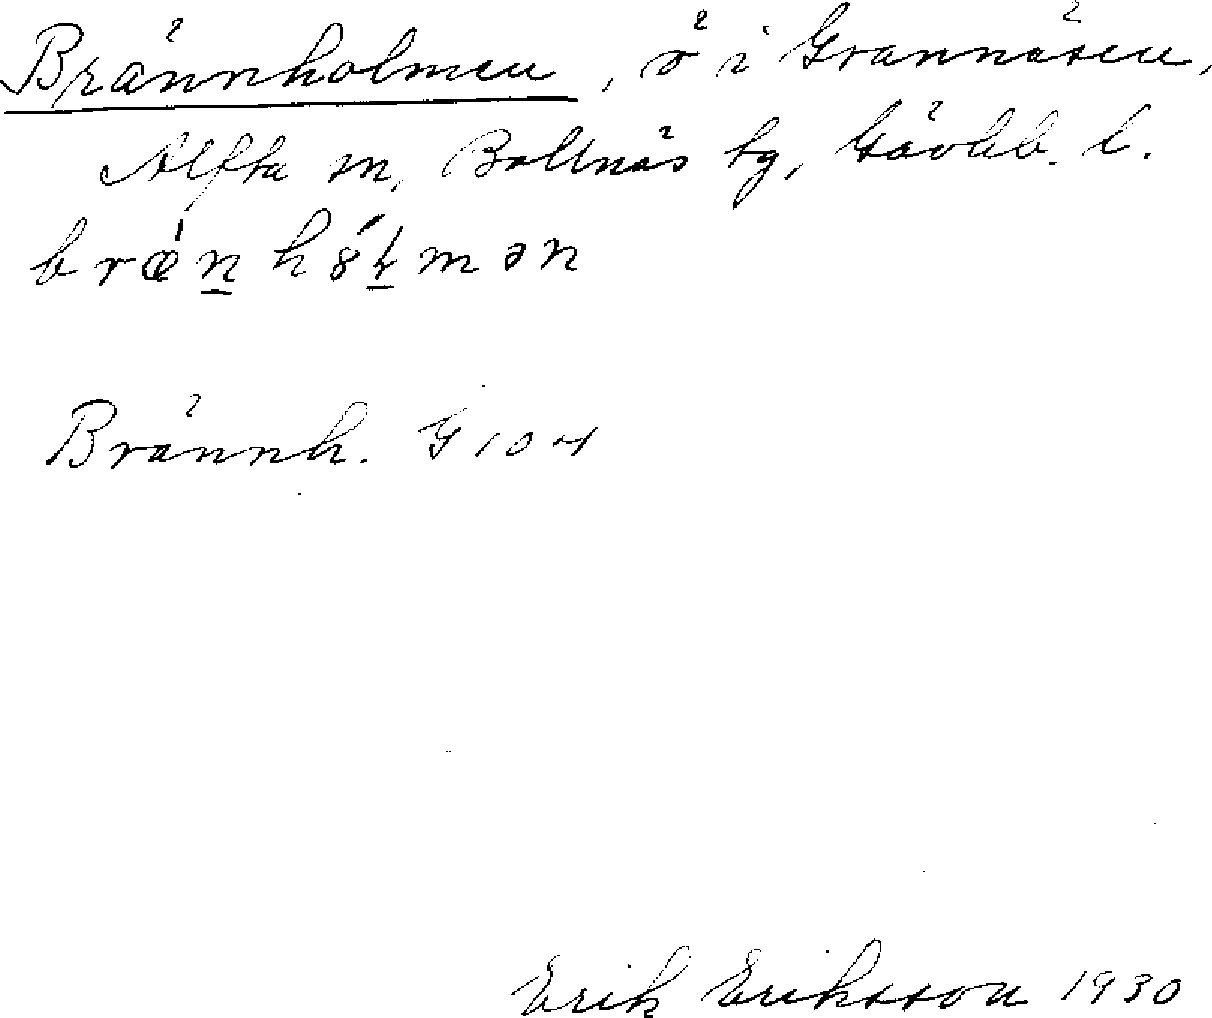 Brännholmen, ö i Grannäsen,
Alfta sn, Bollnäs tg, Gävleb. l.
Brännh. G 104
Erik Eriksson 1930